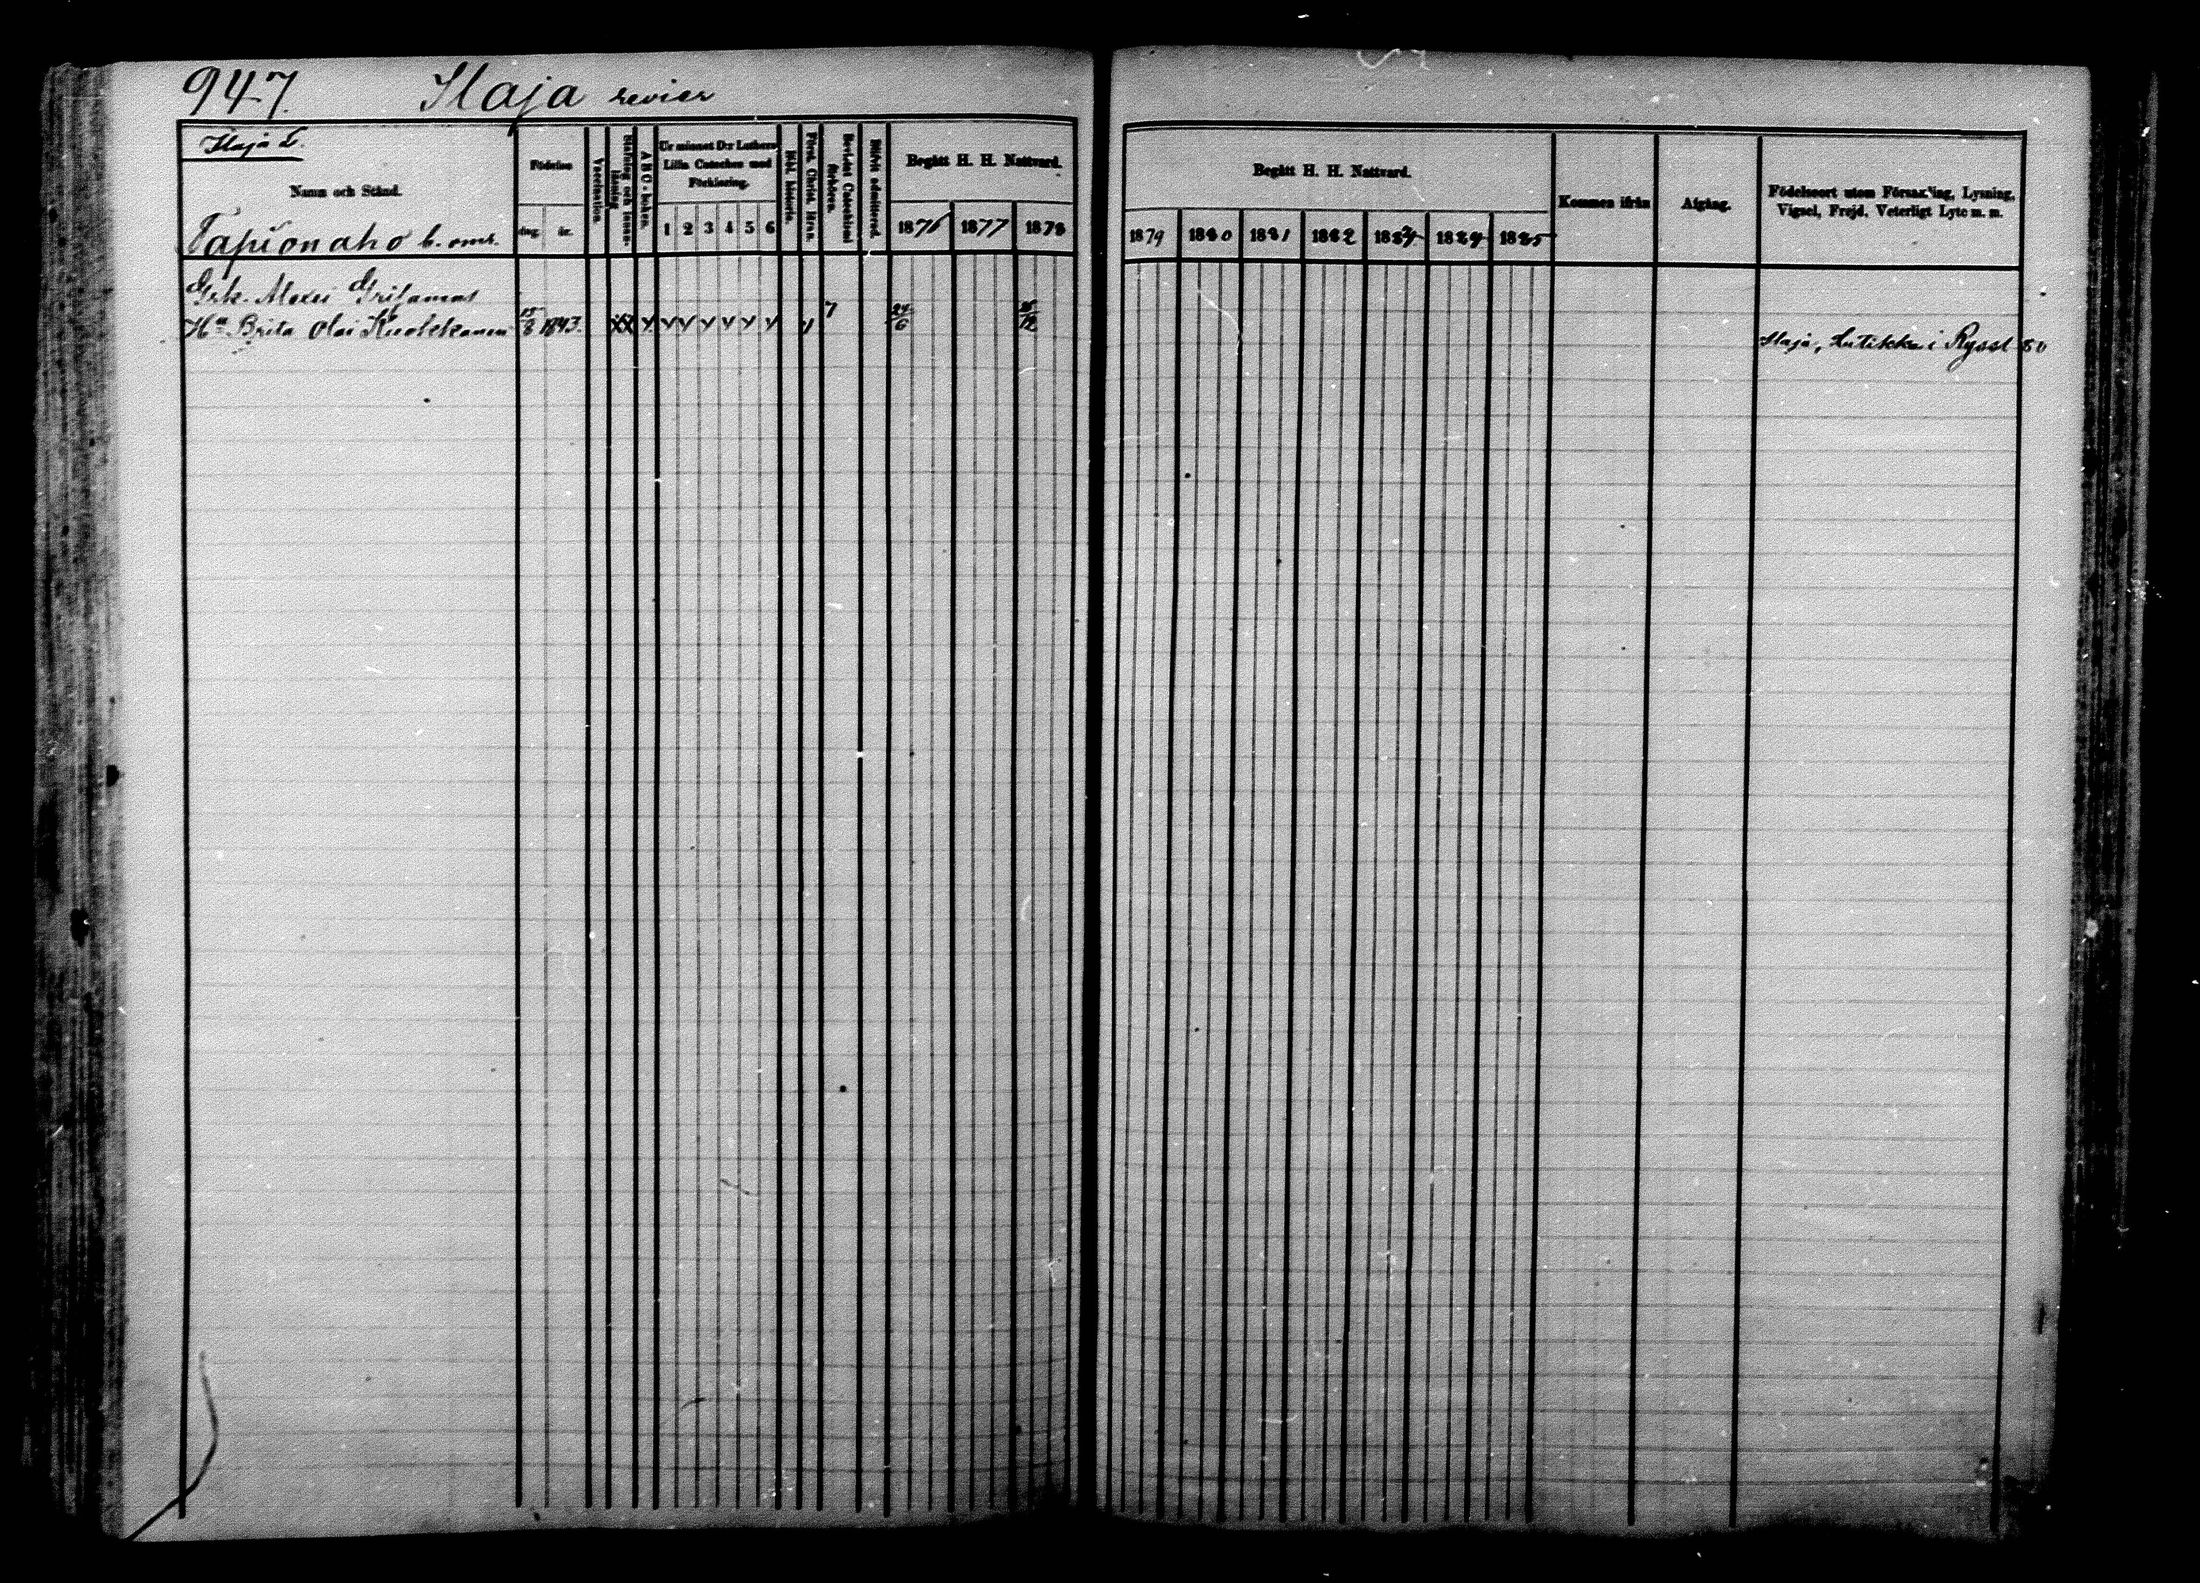 947. Ilaja revier
Ilaja L.
Namn och Stånd.
Tapionaho b. omr.
Födelse
dag. år.
Vaccination.
Stafning och innan-
läsning
ABC-boken.
Ur minnet D:r Luthers
Lilla Cateches med
Förklaring.
1 2 3 4 5 6
Bibl. historia.
Först. Christ. läran.
Bevistat Catechismi
förhören.
Blifvit admitterad.
Begått H. H. Nattvard.
1876 1877 1878
Begått H. H. Nattvard.
1879 1880 1881 1882 1883 1884 1885
Kommen ifrån
Afgång.
Födelseort utom Församling, Lysning,
Vigsel, Frejd, Veterligt Lyte m. m.
Grk. Alexei
Hu Brita Olai 15/8 1843. 7 24/6
Ilaja, Lutikka i Ryssl 80